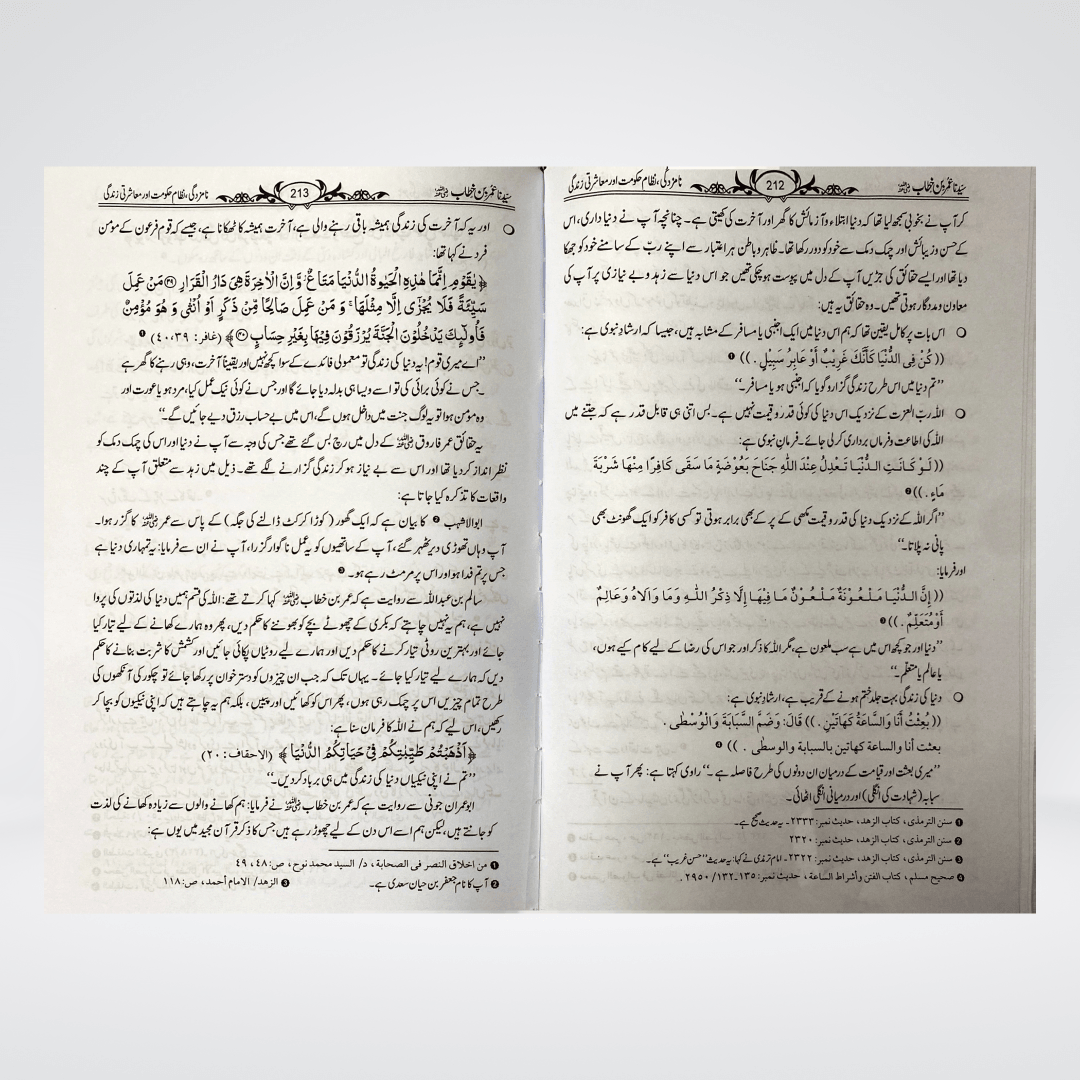 سیدنا عمر بن خطاب رضی اللہ عنہ 212 نامزدگی، نظام حکومت اور معاشرتی زندگی
کر آپ نے بخوبی سمجھ لیا تھا کہ دنیا ابتلاء و آزمائش کا گھر اور آخرت کی کھیتی ہے۔ چنانچہ آپ نے دنیا داری، اس
کے حسن و زیبائش اور چمک دمک سے خود کو دور رکھا تھا۔ ظاہر و باطن ہر اعتبار سے اپنے ربّ کے سامنے خود کو جھکا
دیا تھا اور ایسے حقائق کی جڑیں آپ کے دل میں پیوست ہوچکی تھیں جو اس دنیا سے زہد و بے نیازی پر آپ کی
معاون و مددگار ہوتی تھیں۔ وہ حقائق یہ ہیں:
○ اس بات پر کامل یقین تھا کہ ہم اس دنیا میں ایک اجنبی یا مسافر کے مشابہ ہیں، جیسا کہ ارشاد نبوی ہے:
((كُنْ فِى الدُّنْيَا كَأَنَّكَ غَرِيْبٌ أَوْ عَابِرُ سَبِيْلٍ.)) ❶
’’تم دنیا میں اس طرح زندگی گزارو گویا کہ اجنبی ہو یا مسافر۔‘‘
○ اللہ ربّ العزت کے نزدیک اس دنیا کی کوئی قدر و قیمت نہیں ہے۔ بس اتنی ہی قابل قدر ہے کہ جتنے میں
اللہ کی اطاعت و فرماں برداری کرلی جائے۔ فرمانِ نبوی ہے:
((لَوْ كَانَتِ الدُّنْيَا تَعْدِلُ عِنْدَ اللّٰهِ جَنَاحَ بَعُوْضَةٍ مَا سَقَى كَافِرًا مِنْهَا شَرْبَةَ
مَاءٍ.)) ❷
’’اگر اللہ کے نزدیک دنیا کی قدر و قیمت مکھی کے پر کے بھی برابر ہوتی تو کسی کافر کو ایک گھونٹ بھی
پانی نہ پلاتا۔‘‘
اور فرمایا:
((إِنَّ الدُّنْيَا مَلْعُوْنَةٌ مَلْعُوْنٌ مَا فِيْهَا إِلَّا ذِكْرُ اللّٰهِ وَمَا وَالَاهُ وَعَالِمٌ
أَوْ مُتَعَلِّمٌ.)) ❸
’’دنیا اور جو کچھ اس میں ہے سب ملعون ہے، مگر اللہ کا ذکر اور جو اس کی رضا کے لیے کام کیے ہوں،
یا عالم یا متعلّم۔‘‘
○ دنیا کی زندگی بہت جلد ختم ہونے کے قریب ہے، ارشادِ نبوی ہے:
((بُعِثْتُ أَنَا وَالسَّاعَةُ كَهَاتَيْنِ.)) قَالَ: وَضَمَّ السَّبَابَةَ وَالْوُسْطٰى.
بعثت أنا والساعة كهاتين بالسبابة والوسطى.)) ❹
’’میری بعثت اور قیامت کے درمیان ان دونوں کی طرح فاصلہ ہے۔‘‘ راوی کہتا ہے: پھر آپ نے
سبابہ (شہادت کی انگلی) اور درمیانی انگلی اٹھائی۔
❶ سنن الترمذی، کتاب الزهد، حدیث نمبر: ۲۳۳۳۔ یہ حدیث صحیح ہے۔
❷ سنن الترمذی، کتاب الزهد، حدیث نمبر: ۲۳۲۰
❸ سنن الترمذی، کتاب الزهد، حدیث نمبر: ۲۳۲۲۔ امام ترمذی نے کہا: یہ حدیث ’’حسن غریب‘‘ ہے۔
❹ صحیح مسلم، کتاب الفتن وأشراط الساعة، حدیث نمبر: ۱۳۵۔۱۳۲/ ۲۹۵۰.
سیدنا عمر بن خطاب رضی اللہ عنہ 213 نامزدگی، نظام حکومت اور معاشرتی زندگی
○ اور یہ کہ آخرت کی زندگی ہمیشہ باقی رہنے والی ہے، آخرت ہمیشہ کا ٹھکانا ہے، جیسے کہ قوم فرعون کے مومن
فرد نے کہا تھا:
﴿يٰقَوْمِ اِنَّمَا هٰذِهِ الْحَيٰوةُ الدُّنْيَا مَتَاعٌ وَّاِنَّ الْاٰخِرَةَ هِيَ دَارُ الْقَرَارِ ۝۳۹ مَنْ عَمِلَ
سَيِّئَةً فَلَا يُجْزٰٓى اِلَّا مِثْلَهَا ۚ وَ مَنْ عَمِلَ صَالِحًا مِّنْ ذَكَرٍ اَوْ اُنْثٰى وَ هُوَ مُؤْمِنٌ
فَاُولٰٓئِكَ يَدْخُلُوْنَ الْجَنَّةَ يُرْزَقُوْنَ فِيْهَا بِغَيْرِ حِسَابٍ ۝۴۰﴾ (غافر: ۳۹،۴۰) ❶
’’اے میری قوم! یہ دنیا کی زندگی تو معمولی فائدے کے سوا کچھ نہیں اور یقیناً آخرت، وہی رہنے کا گھر ہے
۔جس نے کوئی برائی کی تو اسے ویسا ہی بدلہ دیا جائے گا اور جس نے کوئی نیک عمل کیا، مرد ہو یا عورت اور
وہ مؤمن ہوا تو یہ لوگ جنت میں داخل ہوں گے، اس میں بے حساب رزق دیے جائیں گے۔‘‘
یہ حقائق عمر فاروق رضی اللہ عنہ کے دل میں رچ بس گئے تھے جس کی وجہ سے آپ نے دنیا اور اس کی چمک دمک کو
نظر انداز کردیا تھا اور اس سے بے نیاز ہوکر زندگی گزارنے لگے تھے۔ ذیل میں زہد سے متعلق آپ کے چند
واقعات کا تذکرہ کیا جاتا ہے:
ابوالاشہب ❷ کا بیان ہے کہ ایک گھور (کوڑا کرکٹ ڈالنے کی جگہ) کے پاس سے عمر رضی اللہ عنہ کا گزر ہوا۔
آپ وہاں تھوڑی دیر ٹھہر گئے، آپ کے ساتھیوں کو یہ عمل ناگوار گزرا، آپ نے ان سے فرمایا: یہ تمہاری دنیا ہے
جس پر تم فدا ہو اور اس پر مر مٹ رہے ہو۔ ❸
سالم بن عبداللہ سے روایت ہے کہ عمر بن خطاب رضی اللہ عنہ کہا کرتے تھے: اللہ کی قسم ہمیں دنیا کی لذتوں کی پروا
نہیں ہے، ہم یہ نہیں چاہتے کہ بکری کے چھوٹے بچے کو بھوننے کا حکم دیں، پھر وہ ہمارے کھانے کے لیے تیار کیا
جائے اور بہترین روٹی تیار کرنے کا حکم دیں اور ہمارے لیے روٹیاں پکائی جائیں اور کشمش کا شربت بنانے کا حکم
دیں کہ ہمارے لیے تیار کیا جائے۔ یہاں تک کہ جب ان چیزوں کو دسترخوان پر رکھا جائے تو چکور کی آنکھوں کی
طرح تمام چیزیں اس پر چمک رہی ہوں، پھر اس کو کھائیں اور پئیں، بلکہ ہم یہ چاہتے ہیں کہ اپنی نیکیوں کو بچا کر
رکھیں، اس لیے کہ ہم نے اللہ کا فرمان سنا ہے:
﴿اَذْهَبْتُمْ طَيِّبٰتِكُمْ فِيْ حَيَاتِكُمُ الدُّنْيَا﴾ (الاحقاف: ۲۰)
’’تم نے اپنی نیکیاں دنیا کی زندگی میں ہی برباد کردیں۔‘‘
ابوعمران جونی سے روایت ہے کہ عمر بن خطاب رضی اللہ عنہ نے فرمایا: ہم کھانے والوں سے زیادہ کھانے کی لذت
کو جانتے ہیں، لیکن ہم اسے اس دن کے لیے چھوڑ رہے ہیں جس کا ذکر قرآن مجید میں یوں ہے:
❶ من اخلاق النصر فی الصحابة، د/ السید محمد نوح، ص: ۴۸، ۴۹
❷ آپ کا نام جعفر بن حیان سعدی ہے۔ ❸ الزهد/ الامام أحمد، ص: ۱۱۸